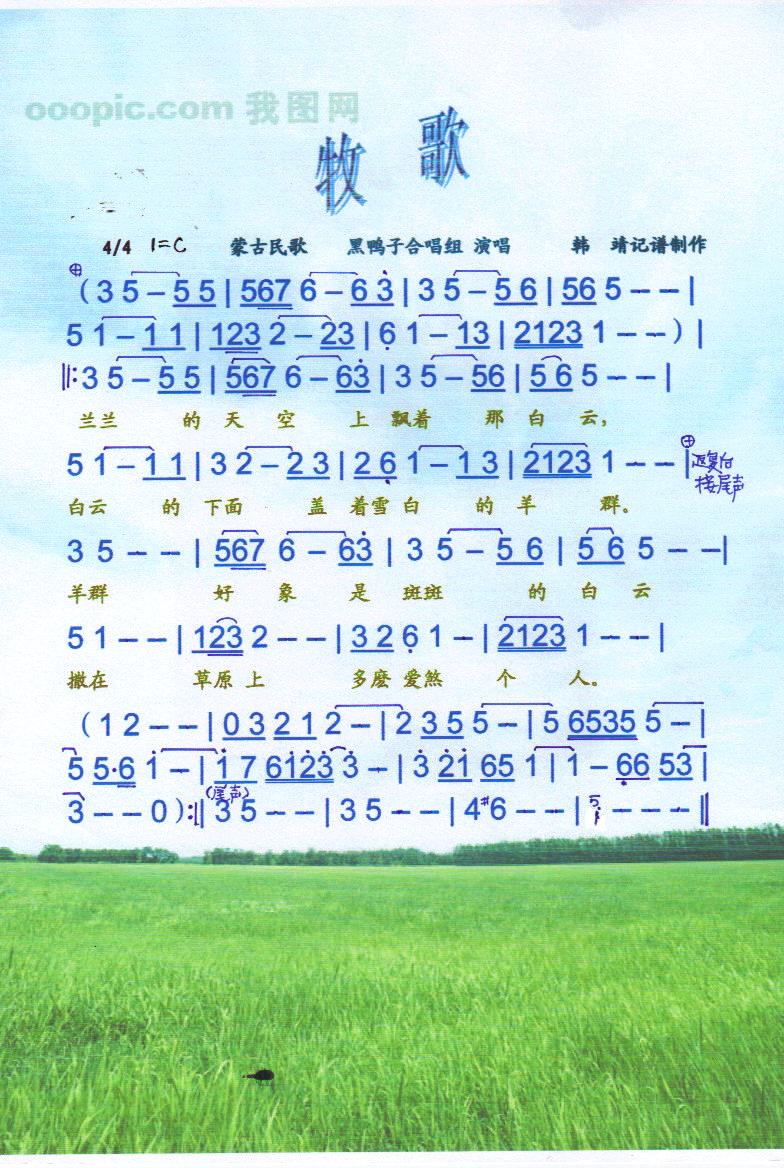 ooopic.com 我图网
牧 歌
4/4 1=C 蒙古民歌 黑鸭子合唱组 演唱 韩 靖记谱制作
(3 5 – 5 5 | 567 6 – 6 3̇ | 3 5 – 5 6 | 56 5 – – |
5 1 – 1 1 | 123 2 – 23 | 6̣ 1 – 13 | 2123 1 – – ) |
‖: 3 5 – 5 5 | 567 6 – 63̇ | 3 5 – 56 | 5 6 5 – – |
兰兰 的 天 空 上 飘着 那 白 云,
5 1 – 1 1 | 3 2 – 2 3 | 2 6̣ 1 – 1 3 | 2123 1 – – | 反复后
接尾声
白云 的 下面 盖 着雪 白 的 羊 群。
3 5 – – | 567 6 – 63̇ | 3 5 – 5 6 | 5 6 5 – – |
羊群 好 象 是 斑斑 的 白 云
5 1 – – | 123 2 – – | 3 2 6̣ 1 – | 2123 1 – – |
撒在 草原 上 多麽 爱煞 个 人。
(1 2 – – | 0 3 2 1 2 – | 2 3 5 5 – | 5 6535 5 – |
5 5·6 1̇ – | 1̇ 7 61̇2̇3̇ 3̇ – | 3̇ 2̇1̇ 65 1 | 1 – 6̣6̣ 53 |
3 – – 0 ) :‖ (尾声) 3 5 – – | 3 5 – – | 4 #6 – – | 5 – – – ‖